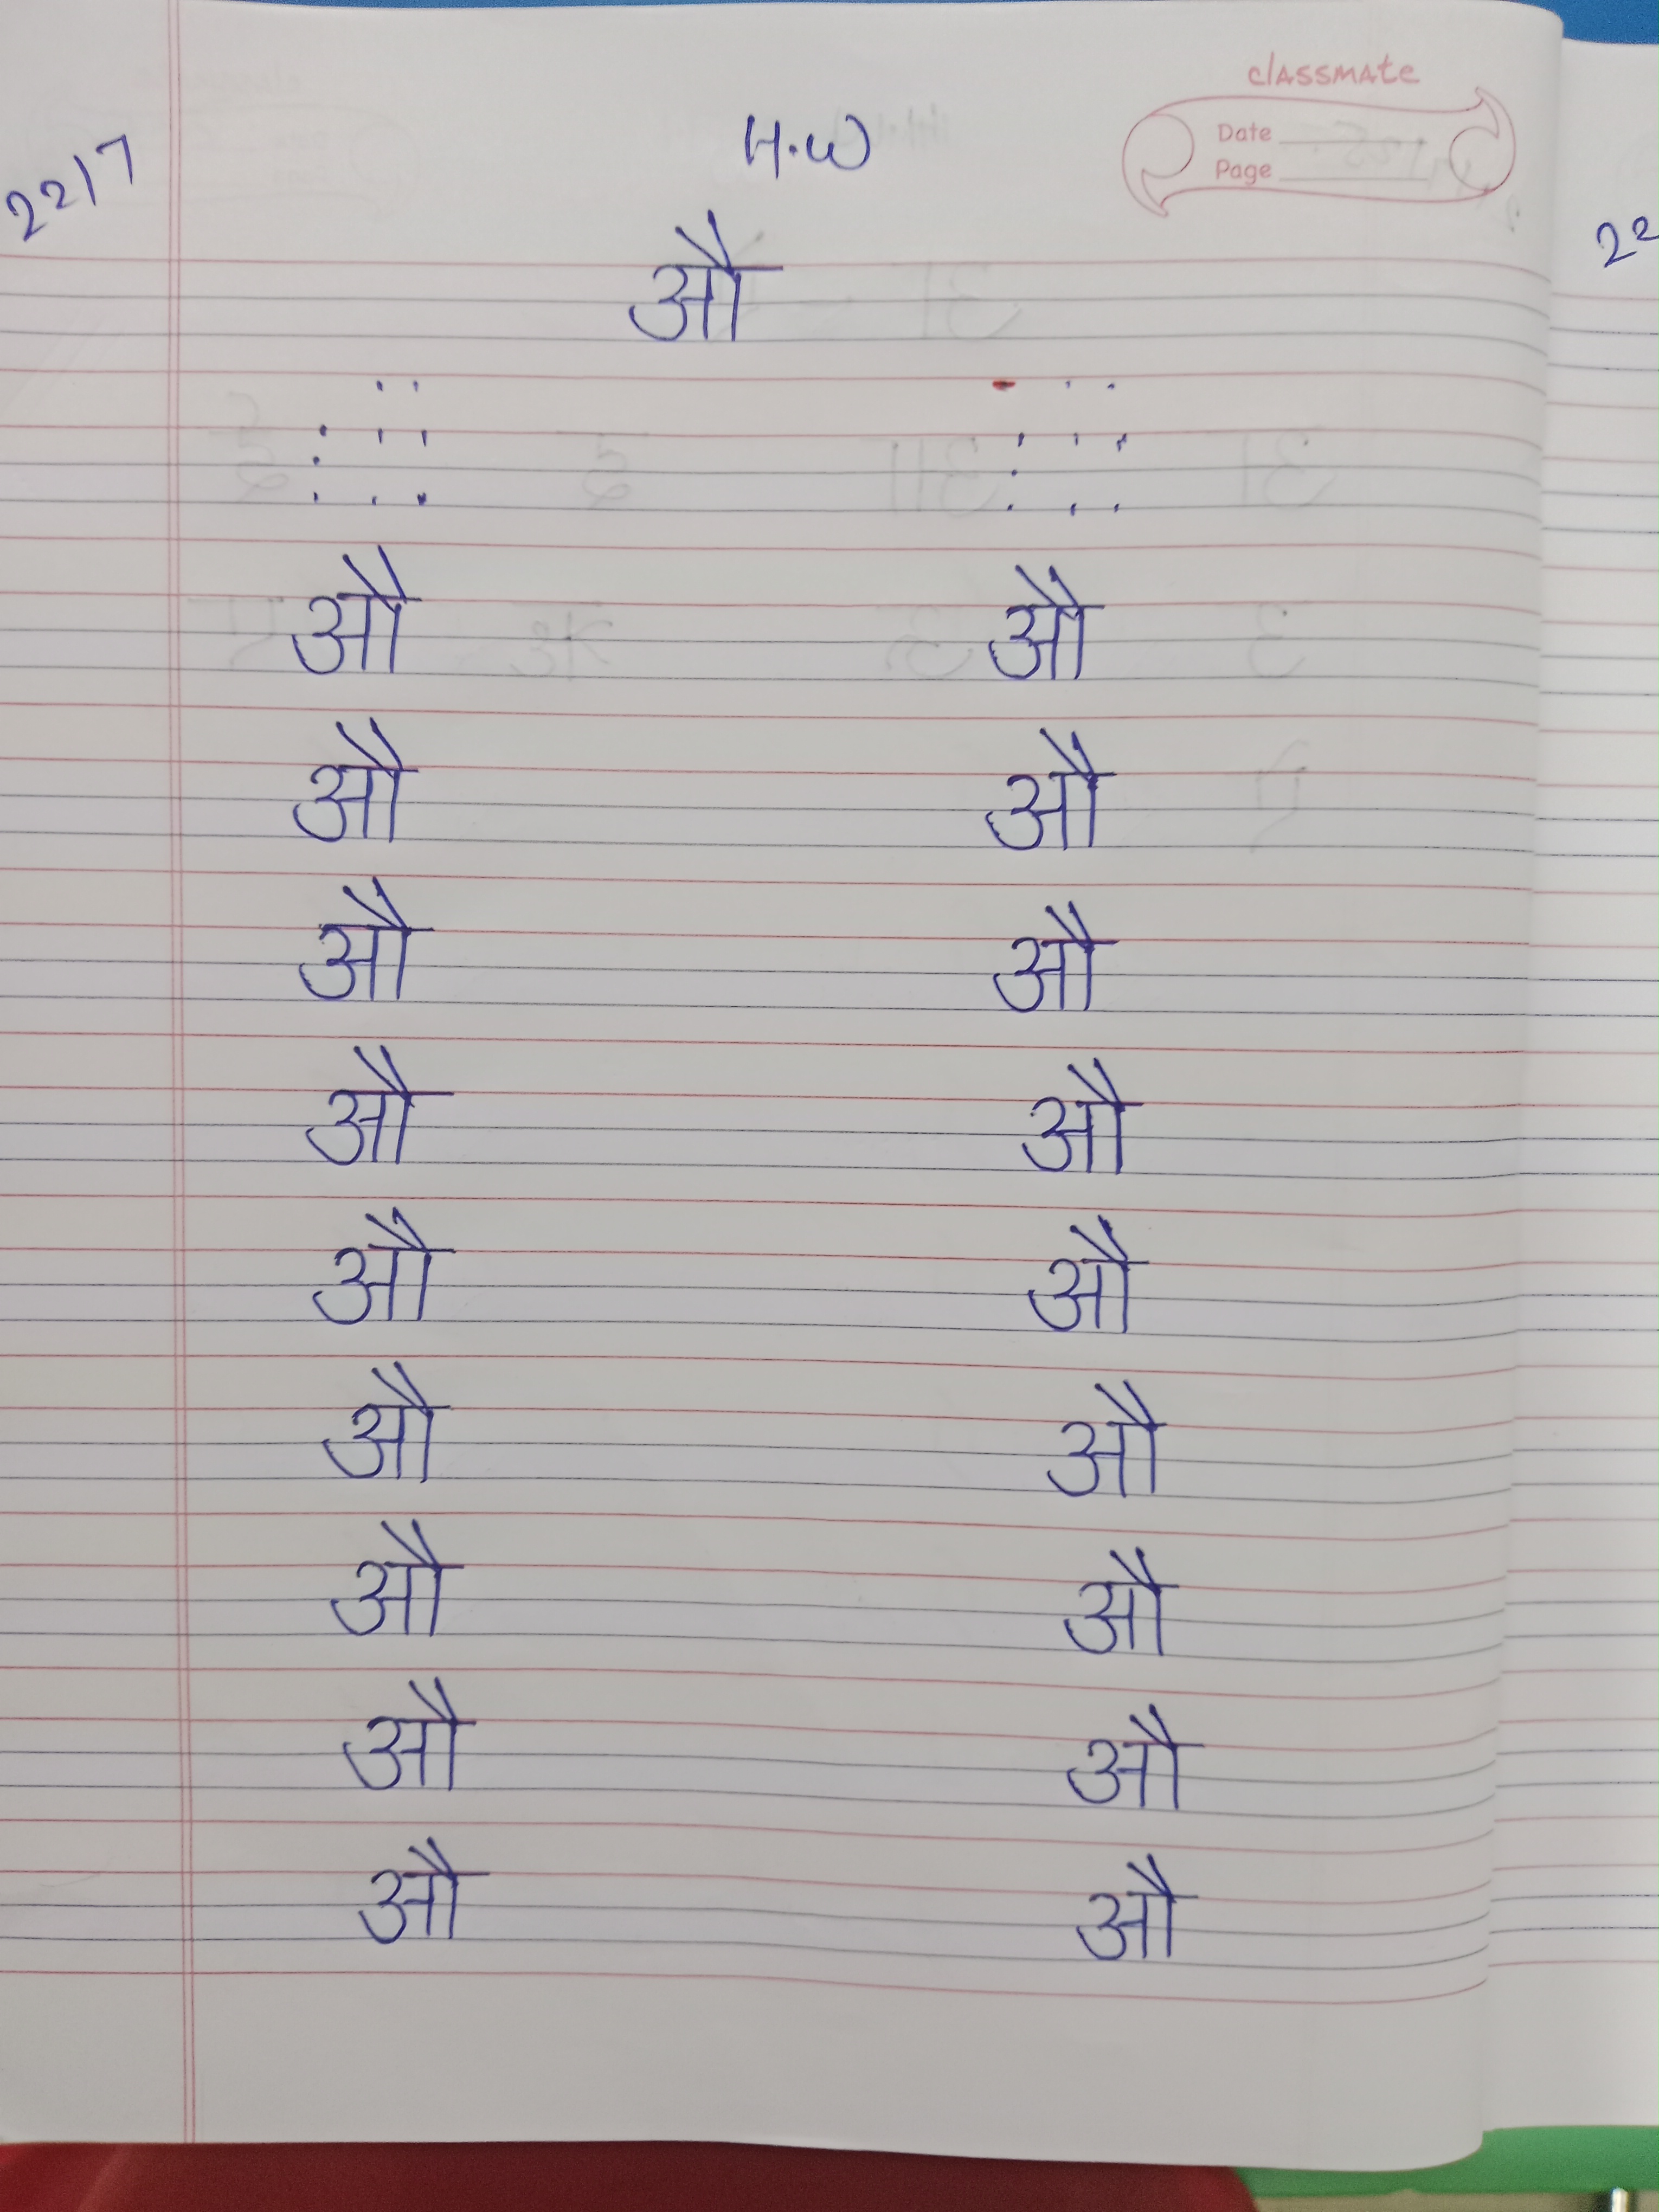 classmate
H.W
Date
Page
22/7
22
औ
औ औ
औ औ
औ औ
औ औ
औ औ
औ औ
औ औ
औ औ
औ औ